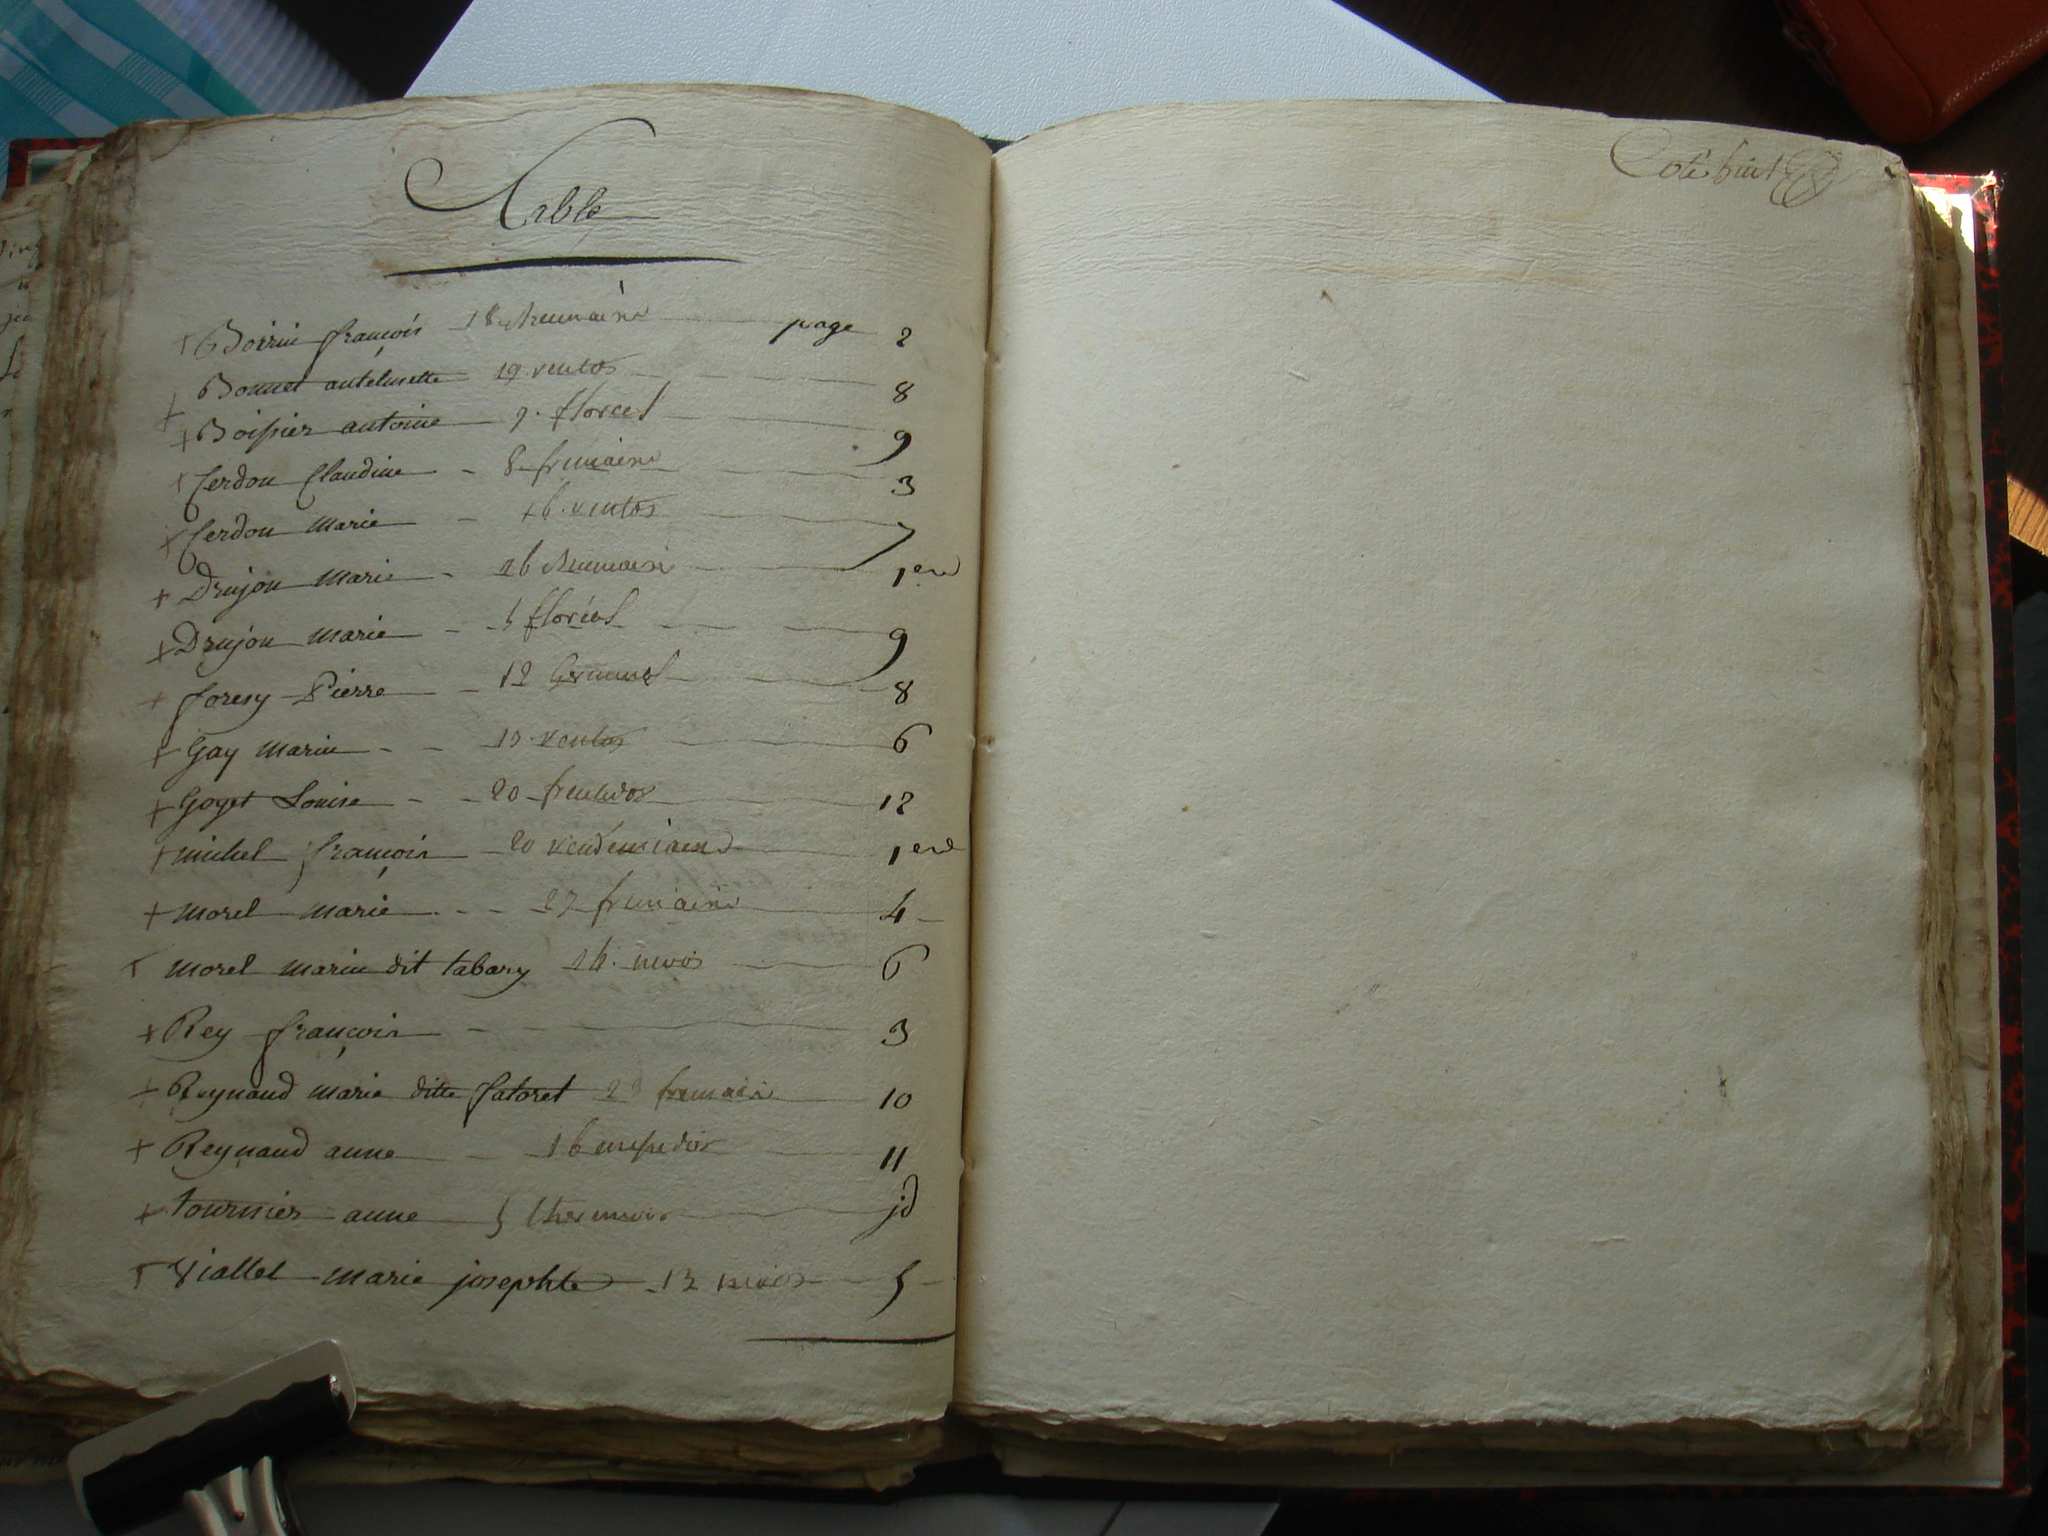 Table
+ Boirin françois 18 brumaire page 2
+ Bonnet antelmette 19 ventos 8
+ Boissier antoine 9. floreel 9
+ Cerdon Claudine - 8 frimaire 3
+ Cerdon marie - 16. ventos 7
+ Drujon marie - 26 brumaire 1ere
+ Drujon marie - 5 floréal 9
+ forery Pierre - 12 Germinal 8
+ Gay marin - - 13 ventos 6
+ Goyet Louise - - 20 fructidor 12
+ michel françois 20 vendemiaire 1ere
+ morel marie - - 27 frimaire 4
+ morel marin dit tabary 14. nivos 6
+ Rey françois 3
+ Reynaud marie ditte fatoret 23 frimair 10
+ Reynaud anne - 16 messidor 11
+ tournier anne 5 thermidor jd
+ Viallet marie josephte 13 nivos 5
Coté huit